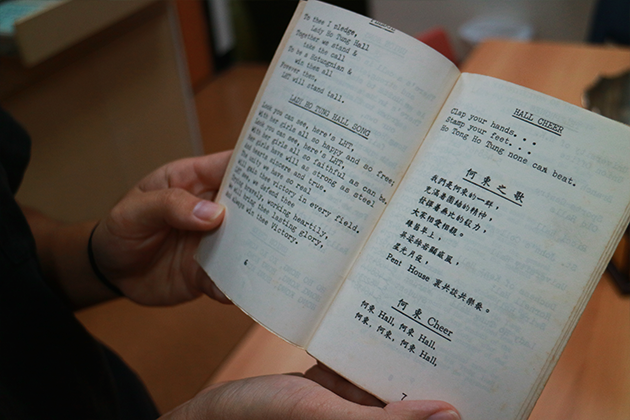 To thee I pledge,
Lady Ho Tung Hall
Together we stand &
take the call
To be a Hotungnian &
win them all
Forever then,
LHT will stand tall.
LADY HO TUNG HALL SONG
Look you can see, here's LHT,
With her girls all so happy and so free;
Look you can see, here's LHT,
With her girls all so faithful as can be.
girls have will as strong as steel
hearts sincere and true.
unity, we here so real
gain thee victory in every field.
lovingly, working heartily,
we defend thee
bring thee lasting glory,
always win thee victory.
6
HALL CHEER
Clap your hands....
Stamp your feet....
So Tong Ho Tung none can beat.
何東之歌
我們是何東的一群,
充滿着團結的精神,
發揮着無比的毅力,
大眾相愛相親。
綠茵草上,
星光月夜,
Pent House 裏共談共樂奏。
何東 Cheer
何東 Hall, 何東 Hall,
何東, 何東, 何東 Hall,
7